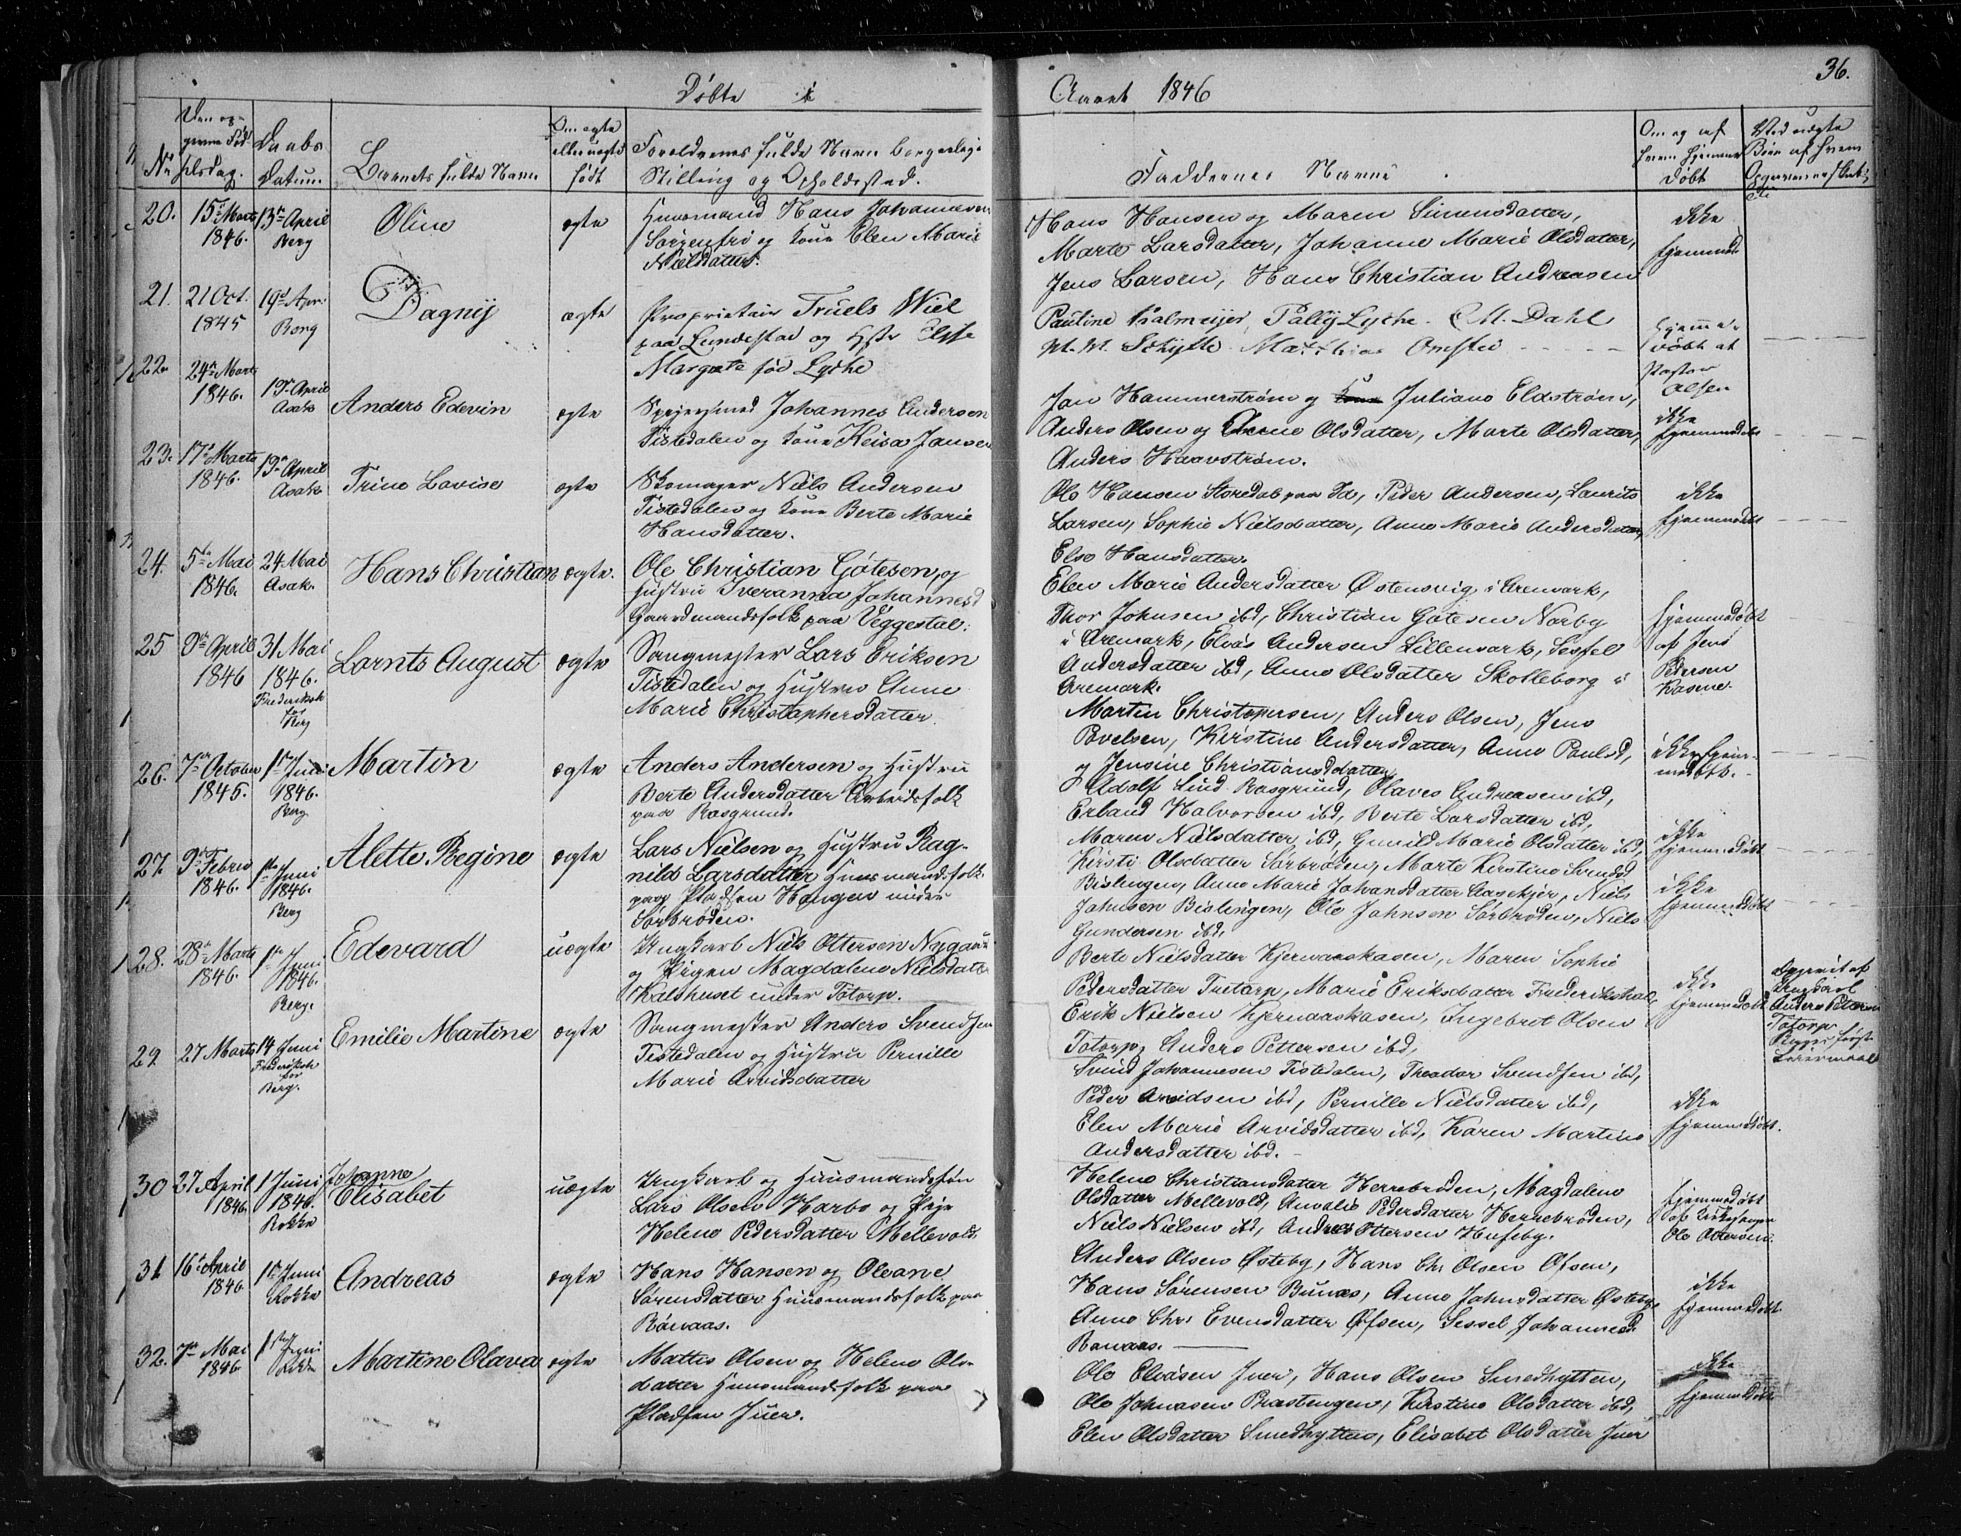 Døbte i
Aaret 1846
36.
No.
Den opgivne Fødselsdag.
Daabs Datum.
Barnets fulde Navn
Om ægte eller uægte født
Forældrenes fulde Navn borgerlige
Stilling og Opholdssted.
Faddernes Navne
Om og af hvem hjemmedøbt
20.
15de Marts
1846.
13de April
Berg
Oline
ægte
Huusmand Hans Johannesen
Sørgenfri og Kone Elen Marie
Nielsdatter.
Hans Hansen og Maren Simensdatter,
Marte Larsdatter, Johanne Marie Olsdatter,
Jens Larsen, Hans Christian Andreasen
ikke
hjemmed.
21.
21 Oct.
1845
19de Apr.
Berg
Dagny
ægte
Proprietair Truels Wiel
paa Lundestad og Hstr Else
Margrete fød Lyche
Pauline Kalmeijer, Polly Lyche. C. M. Dahl
M. M. Schytte. Matthias Omsted
hjemmedøbt af
Pastor
Olsen
22.
24de Marts
1846.
19de April
Asak
Anders Edevin
ægte
Johannes Andersen
Tistedalen og Kone Keisa Jansen
Jan Hammerstrøm og Kone Juliane Eldstrøm,
Anders Olsen og Olsdatter, Marte Olsdatter,
Anders Haavstrøm.
ikke
hjemmedøbt
23.
17de Marts
1846.
19de April
Asak
Trine Lovise
ægte
Skomager Niels Andersen
Tistedalen og Kone Berte Marie
Hansdatter.
Ole Hansen Storedal paa Id, Peder Andersen, Laurits
Larsen, Sophie Nielsdatter, Anne Marie Andersdatter,
Else Hansdatter.
ikke
hjemmedøbt
24.
5te Mai
1846.
24 Mai
Asak.
Hans Christian
ægte.
Ole Christian Gøtesen og
Hustru Iveranna Johannesd
Gaardmandsfolk paa Veggestal.
Elen Marie Andersdatter Østensvig i Aremark,
Thor Johnsen ibd, Christian Gøtesen Norby
i Aremark, Elias Andersen Lillemark, Sessel
Andersdatter ibd, Anne Olsdatter Skolleborg i
Aremark.
hjemmedøbt
af Jens
Pedersen
Kasene.
25
9de April
1846
31 Mai
1846.
Frederiksh
for
Berg
Lornts August
ægte
Saugmester Lars Eriksen
Tistedalen og Hustru Anne
Marie Christophersdatter.
Martin Christopersen, Anders Olsen, Jens
Poelsen, Kerstine Andersdatter, Anne Paulsd,
og Jensine Christiansdatter
ikke hjemmedøbt.
26.
7de October
1845.
1ste Juni
1846.
Berg
Martin
ægte
Anders Andersen og Hustru
Berte Andersdatter Arbeidsfolk
paa Rosgrund.
Adolf Lind Rosgrund, Olaves Andreasen ibd,
Erland Halvorsen ibd, Berte Larsdatter ibd,
Maren Nielsdatter ibd, Gunild Marie Olsdatter ibd,
ikke
hjemmedøbt
27.
9de Febru
1846.
1ste Juni
1846.
Berg
Alette Regine
ægte
Lars Nielsen og Hustru Ragnild Larsdatter Huusmandsfolk
paa Pladsen Haugen under
Sørbrøden.
Kirsti Olsdatter Sørbrøden, Marte Kirstine Svendsd
Bislingen, Anne Marie Johansdatter Aaskjer, Niels
Johnsen Bislingen, Ole Johnsen Sørbrøden, Niels
Gundersen ibd.
ikke
hjemmedøbt
28.
28de Marts
1846.
1ste Juni
1846.
Berg.
Edevard
uægte
Ungkarl Niels Ottersen Nygaard
og Pigen Magdalene Nielsdatter
Kalshuset under Totorp.
Berte Nielsdatter Kjernaaskasen, Maren Sophie
Pedersdatter Tustorp, Marie Eriksdatter Frederikshald
Erik Nielsen Kjernaaskasen, Ingebret Olsen
Totorp, Anders Pettersen ibd.
ikke
hjemmedøbt
Opgivet af
Ungkarl
Anders Petersen
Totorp
Begges første
Leiermaal
29
27 Marts
14 Juni
Frederiksh
for
Berg.
Emilie Martine
ægte
Saugmester Anders Svendsen
Tistedalen og Hustru Pernille
Marie Arvidsdatter
Svend Johannesen Tistedalen, Theodor Svendsen ibd,
Peder Arvidsen ibd, Pernille Nielsdatter ibd,
Elen Marie Arvidsdatter ibd, Karen Martine
Andersdatter ibd.
ikke
hjemmedøbt.
30
27 April
1846
1 Juni
1846.
Rokke
Johanne
Elisabet
uægte
Ungkarl og Huusmandssøn
Lars Olsen Harbo og Pige
Helene Pedersdatter Mellevold.
Helene Christiansdatter Herrebrøden, Magdalene
Olsdatter Mellevold, Amalie Pedersdatter Herrebrøden,
Niels Nielsen ibd, Andreas Ottersen Huseby.
hjemmedøbt
af Kirkesanger
Ole Ottersen.
31
16de April
1846
1ste Juni
Rokke
Andreas
ægte
Hans Hansen og Oleane
Sørensdatter Huusmandsfolk paa
Rønaas.
Anders Olsen Østeby, Hans Chr Olsen Øfsen,
Hans Sørensen Buaas, Anne Johnsdatter Østeby,
Anne Chr. Evensdatter Øfsen, Sessel Johannesd
Rønaas.
ikke
hjemmedøbt
32.
7de Mai
1846
1ste Juni
Rokke
Martine Olava
ægte
Mattis Olsen og Helene Olsdatter Huusmandsfolk paa
Pladsen Juer.
Ole Eliasen Juer, Hans Olsen Smedhytten,
Ole Johnasen Bratengen, Kirstine Olsdatter ibd,
Elen Olsdatter Smedhytten, Elisabet Olsdatter Juer
ikke
hjemmedøbt